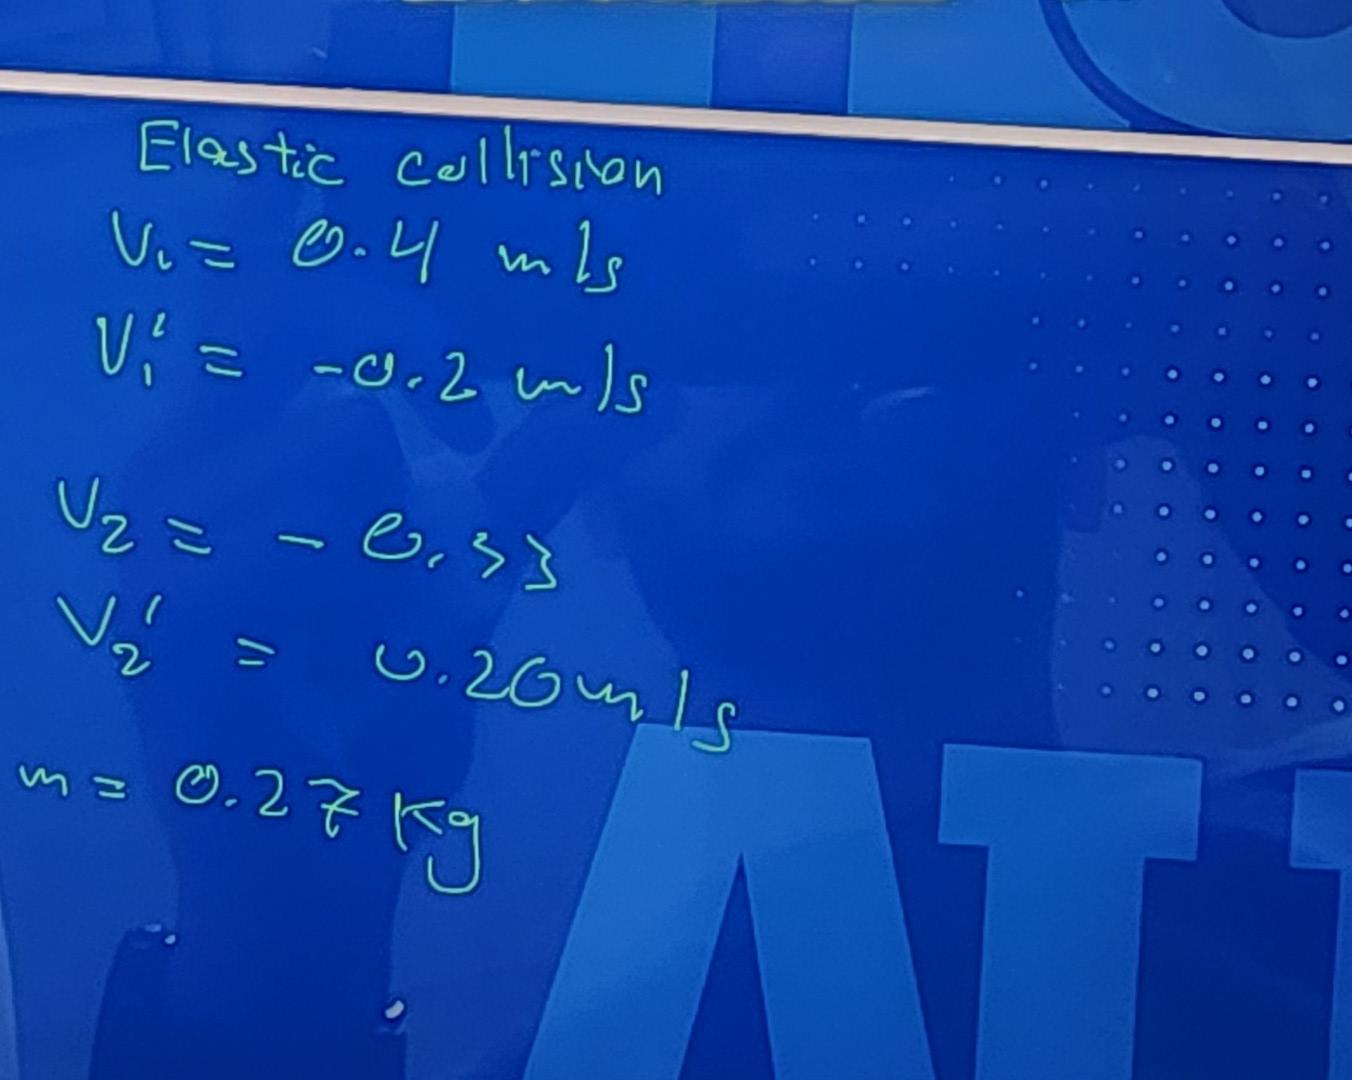 Elastic collision
V₁ = 0.4 m/s
V₁' = -0.2 m/s
V₂ = -0.33
V₂' = 0.20 m/s
m = 0.27 Kg